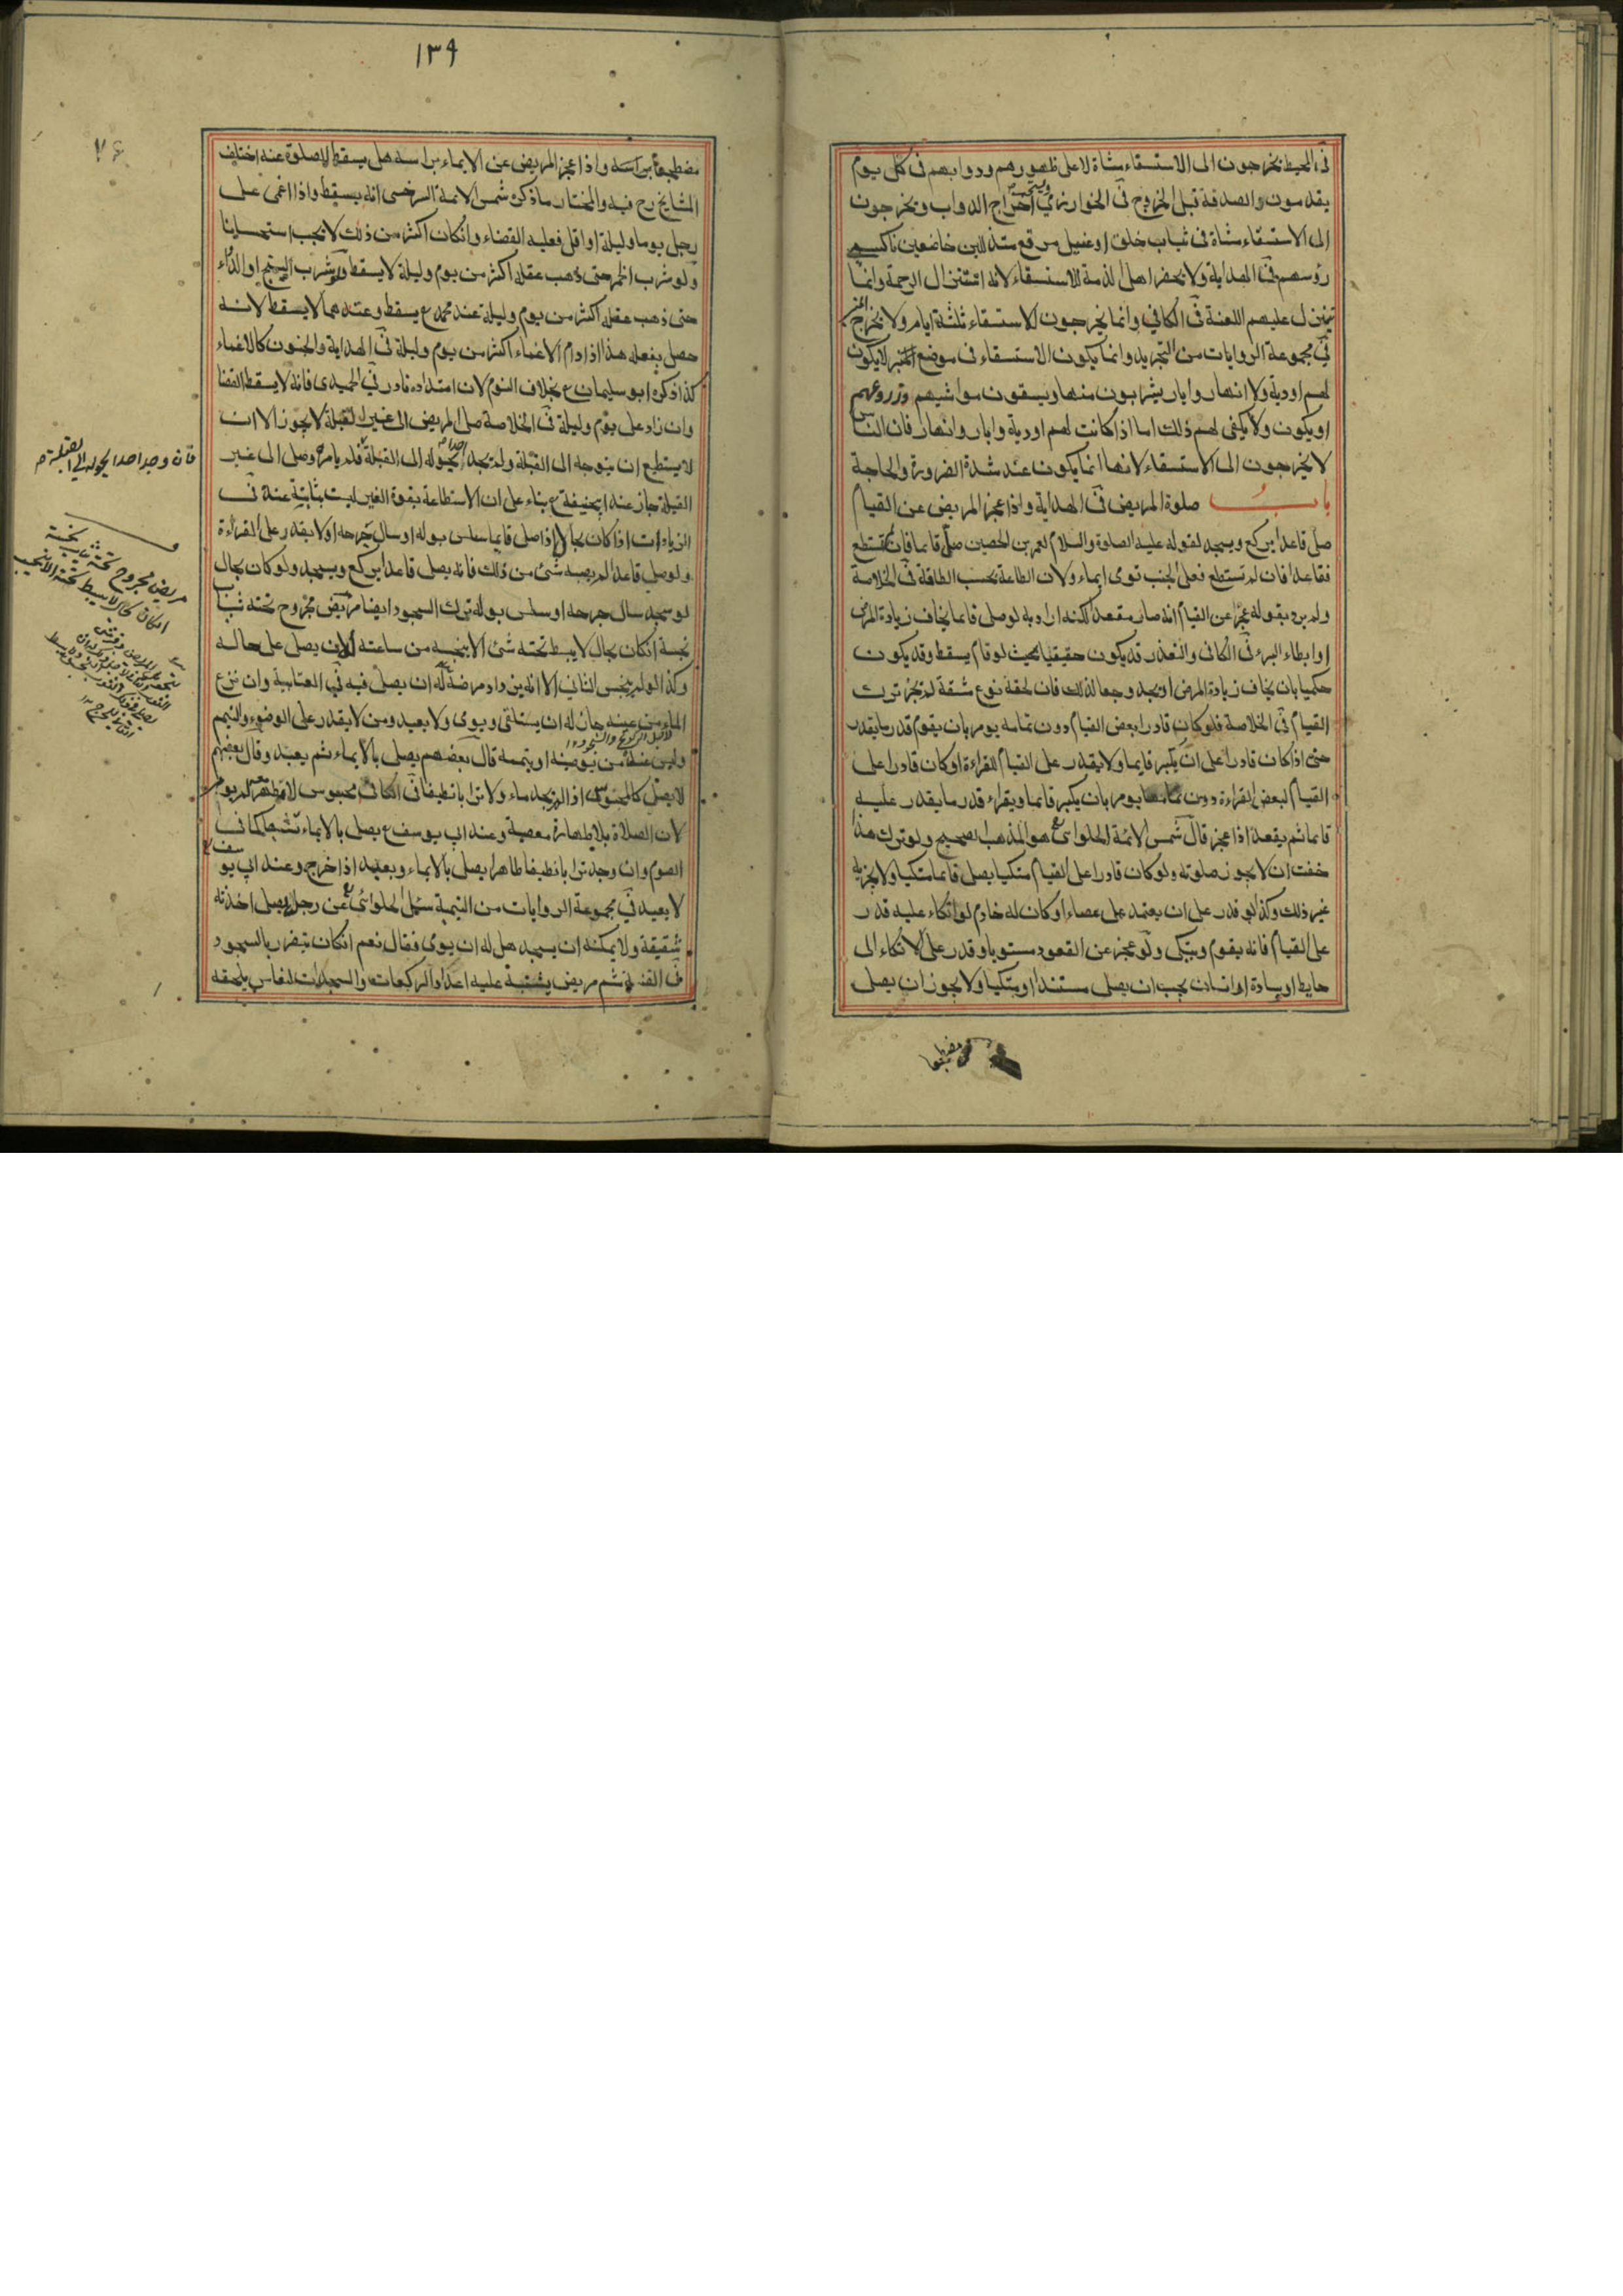 في المحيط يخرجون الى الاستسقاء مشاة لا على ظهورهم ودوابهم في كل يوم
يقدمون الصدقة قبل الخروج في الخوارزمي ويستحب اخراج الدواب ويخرجون
الى الاستسقاء مشاة في ثياب خلق او غسيل مرقع متذللين خاضعين ناكسي
رؤسهم في الهداية ولا يحضر اهل الذمة للاستسقاء لانه استنزال الرحمة وانما
تنزل عليهم اللعنة في الكافي وانما يخرجون للاستسقاء ثلثة ايام ولا يخرج المنبر
في مجموعة الروايات من التجريد وانما يكون الاستسقاء في موضع لا يكون
لهم اودية ولا انهار وابار يشربون منها ويسقون مواشيهم وزروعهم
او يكون ولا يكفى لهم ذلك اما اذا كانت لهم اودية وابار وانهار فان الناس
لا يخرجون الى الاستسقاء لانها انما يكون عند شدة الضرورة والحاجة
باب صلوة المريض في الهداية واذا عجز المريض عن القيام
صلى قاعدا يركع ويسجد لقوله عليه الصلوة والسلام لعمر بن الحصين صل قائما فان لم تستطع
فقاعدا فان لم تستطع فعلى الجنب تومى ايماء ولان الطاعة بحسب الطاقة في الخلاصة
ولم يرد بقوله عجز عن القيام انه صار مقعدا لكنه اراد به لو صلى قائما يخاف زيادة المرض
او ابطاء البرء في الكافي والتعذر قد يكون حقيقيا بحيث لو قام يسقط وقد يكون
حكميا بان يخاف زيادة المرض او يجد وجعا لذلك فان لحقه نوع مشقة لم يجز ترك
القيام في الخلاصة فلو كان قادرا بعض القيام دون تمامه يومر بان يقوم قدر ما يقدر
حتى اذا كان قادرا على ان يكبر قايما ولا يقدر على القيام للقراءة او كان قادرا على
القيام لبعض القراءة دون تمامها يومر بان يكبر قائما ويقراء قدر ما يقدر عليه
قائما ثم يقعد اذا عجز قال شمس الائمة الحلوائى هو المذهب الصحيح ولو ترك هذا
خفت ان لا يجوز صلوته ولو كان قادرا على القيام متكيا يصلى قائما متكيا ولا يجزيه
غير ذلك وكذا لو قدر على ان يعتمد على عصاء او كان له خادم لو اتكاء عليه قدر
على القيام فانه يقوم ويتكى ولو عجز عن القعود مستويا وقدر على الاتكاء الى
حايط او وسادة او انسان يجب ان يصلى مستندا او متكيا ولا يجوز ان يصلى
مضطجعا
١٣٩
٧٤
مضطجعا براسه واذا عجز المريض عن الايماء براسه هل يسقط الصلوة عنه اختلف
المشايخ رح فيه والمختار ما ذكره شمس الائمة السرخسى انه يسقط واذا اغمى على
رجل يوما وليلة او اقل فعليه القضاء وانكان اكثر من ذلك لا يجب استحسانا
ولو شرب الخمر حتى ذهب عقله اكثر من يوم وليلة لا يسقط ولو شرب البنج او الدواء
حتى ذهب عقله اكثر من يوم وليلة عند محمد ع يسقط وعندهما لا يسقط لانه
حصل بفعله هذا اذا دام الاغماء اكثر من يوم وليلة في الهداية والجنون كالاغماء
كذا ذكره ابو سليمان ع بخلاف النوم لان امتداده نادر في الحميدى فانه لا يسقط القضا
وان زاد على يوم وليلة في الخلاصة صلى المريض الى غير القبلة لا يجوز الا ان
لا يستطيع ان يتوجه الى القبلة ولم يجد احدا يحوله الى القبلة فلم يامره وصلى الى غير
القبلة جاز عند ابيحنيفة ع بناء على ان الاستطاعة بقوة الغير ليست بثابتة عنده في
الزيادات اذا كان بحال اذا صلى قايما سلس بوله او سال جرحه او لا يقدر على القراءة
ولو صلى قاعدا لم يصبه شئ من ذلك فانه يصلى قاعدا يركع ويسجد ولو كان بحال
لو سجد سال جرحه او سلس بوله ترك السجود ايضا مريض مجروح تحته ثياب
نجسة انكان بحال لا يبسط تحته شئ الا ينجسه من ساعته لان يصلى على حاله
وكذا لو لم يتنجس الثاني الا انه يزداد مرضه له ان يصلى فيه في العتابية وان نزع
الماء من عينه جاز له ان يستلقى ويومى ولا يعيد ومن لا يقدر على الوضوء والتيمم
لاجل الركوع والسجود ١٢
وليس عنده من يوضيه او يتممه قال بعضهم يصلى بالايماء ثم يعيد وقال بعضهم
لا يصلى كالمحبوس اذا لم يجد ماء ولا ترابا نظيفا في الكافي محبوس
لان الصلاة بلا طهارة معصية وعند ابي يوسف ع يصلى بالايماء تشبها كما في
الصوم وان وجد ترابا نظيفا طاهرا يصلى بالايماء ويعيد اذا خرج وعند ابي يوسف ع
لا يعيد في مجموعة الروايات من اليتيمة سئل الحلوائى ع عن رجل يصلى اخذته
شقيقة ولا يمكنه ان يسجد هل له ان يومى فقال نعم انكان يتضرر بالسجود
في القنية ثم مريض يشتبه عليه اعداد الركعات والسجدات لنعاس يلحقه
فان وجد احدا يحوله الى القبلة م
مريض مجروح تحته ثياب نجسة
انكان بحال لا يبسط تحته الا يتنجس